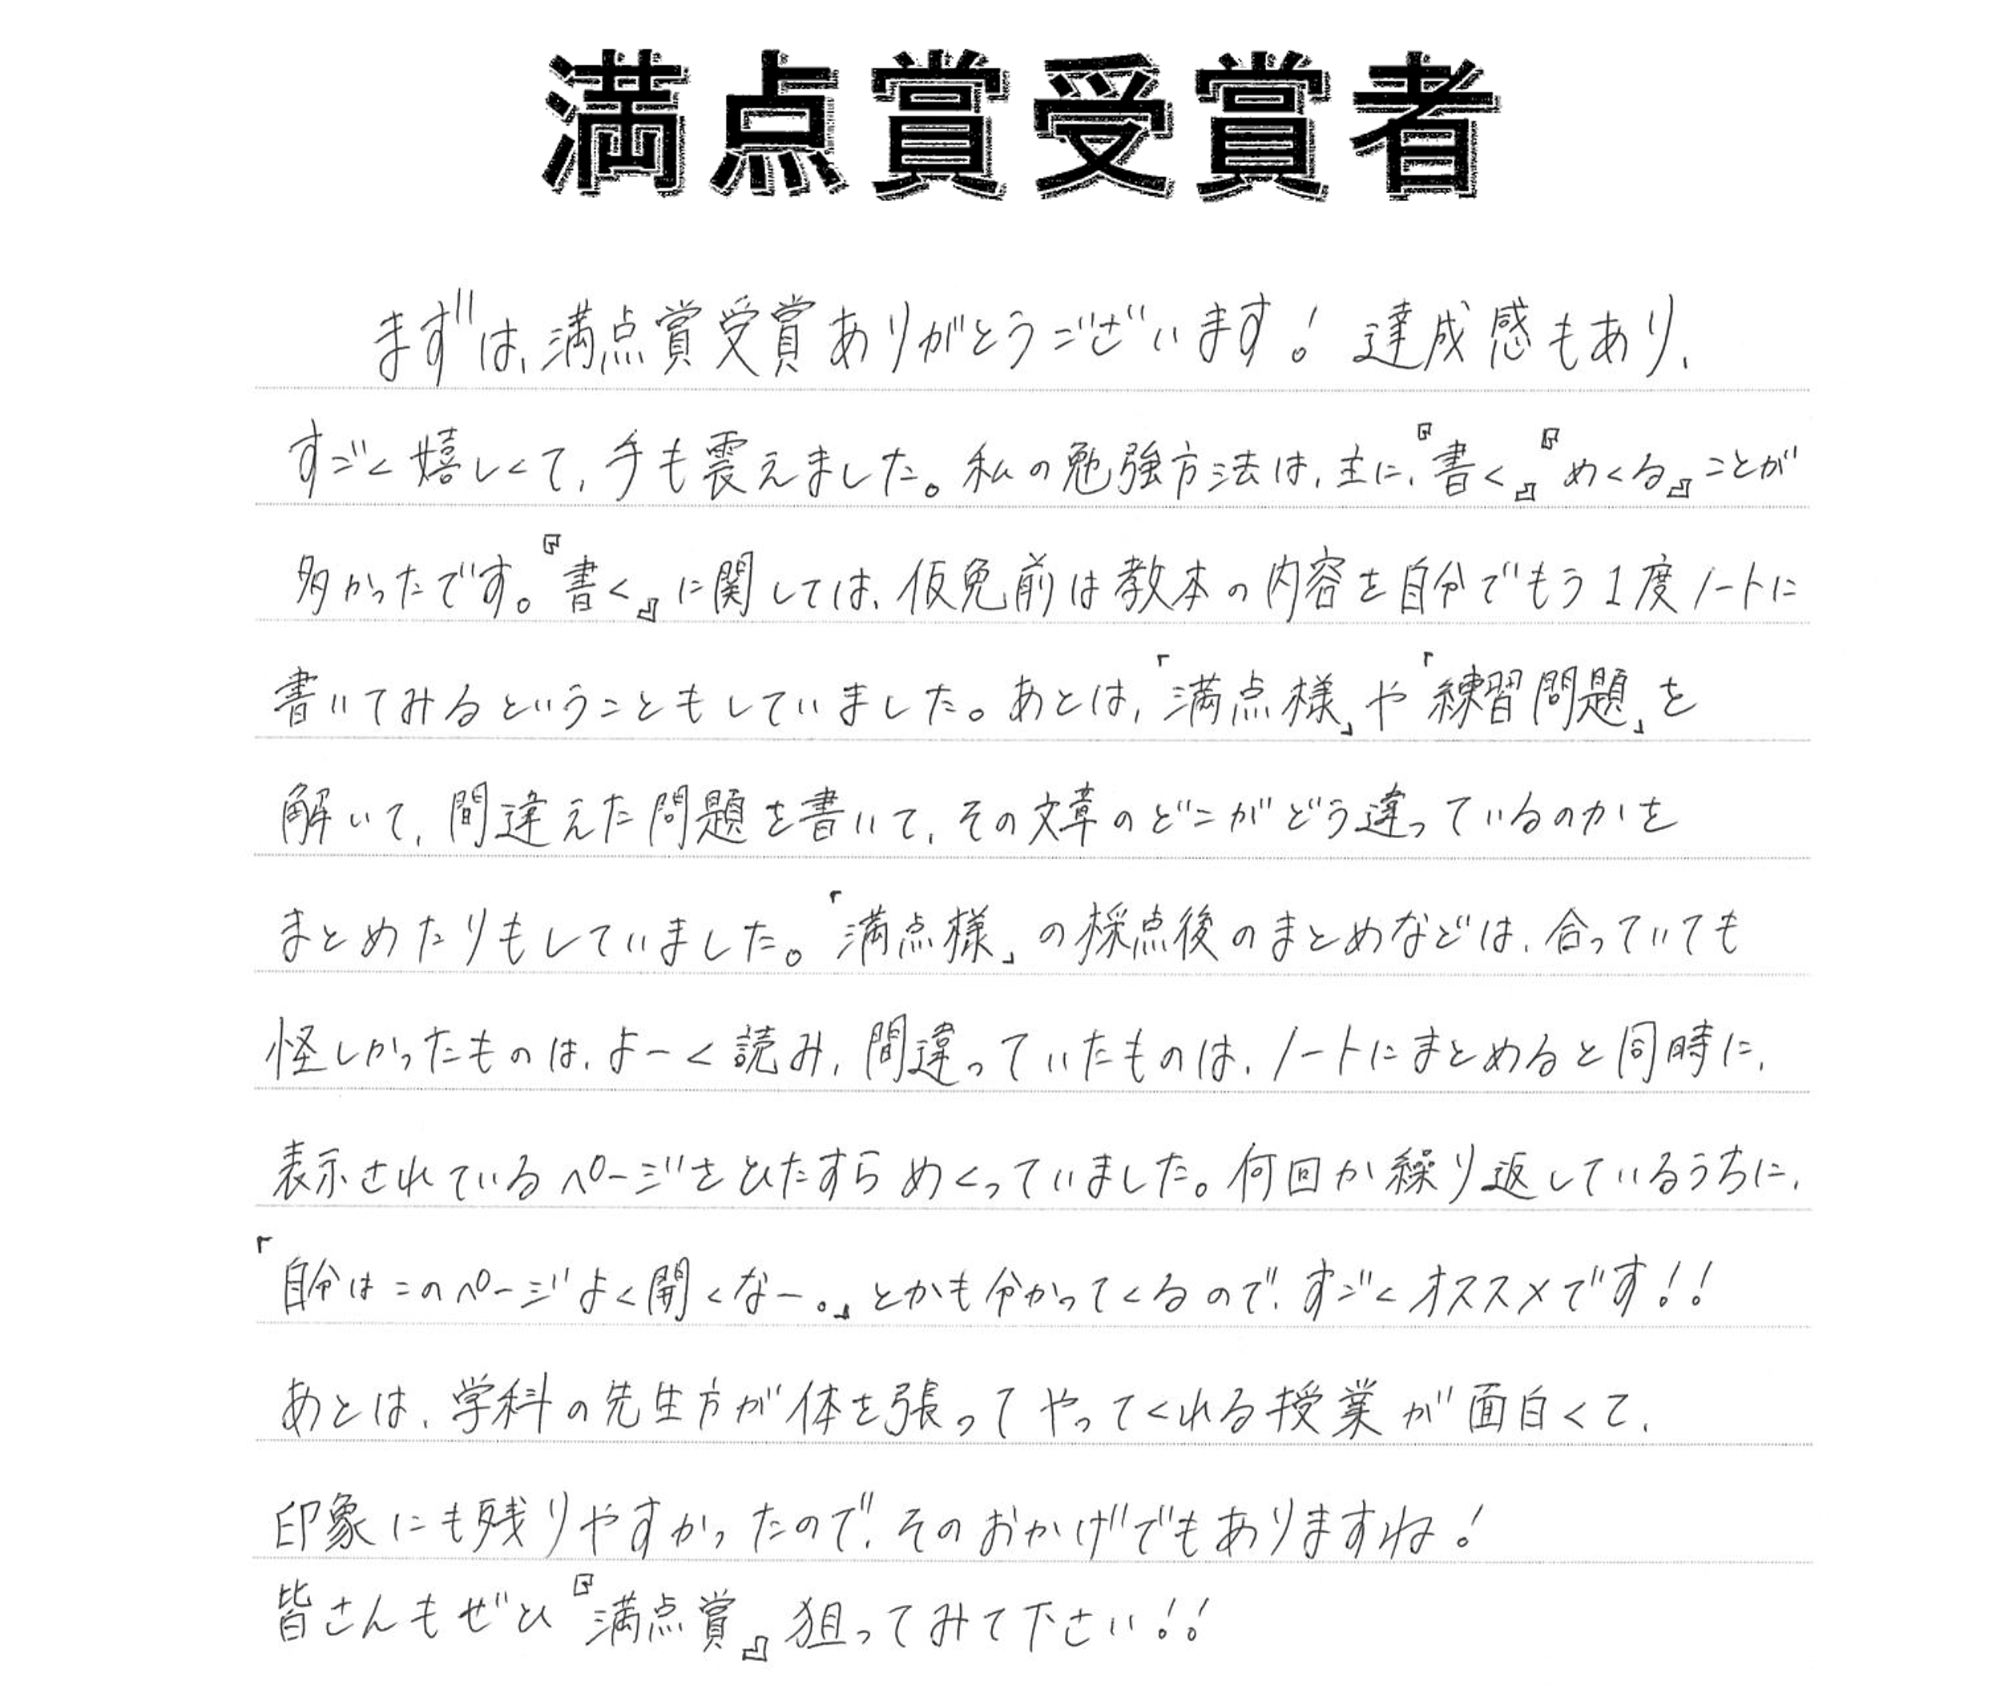 満点賞受賞者
まずは、満点賞受賞ありがとうございます！ 達成感もあり、
すごく嬉しくて、手も震えました。私の勉強方法は、主に、『書く』『めくる』ことが
多かったです。『書く』に関しては、仮免前は教本の内容を自分でもう1度ノートに
書いてみるということもしていました。あとは、「満点様」や「練習問題」を
解いて、間違えた問題を書いて、その文章のどこがどう違っているのかを
まとめたりもしていました。「満点様」の採点後のまとめなどは、合っていても
怪しかったものは、よーく読み、間違っていたものは、ノートにまとめると同時に、
表示されているページをひたすらめくっていました。何回か繰り返しているうちに、
「自分はこのページよく開くなー。」とかも分かってくるので、すごくオススメです！！
あとは、学科の先生方が体を張ってやってくれる授業が面白くて、
印象にも残りやすかったので、そのおかげでもありますね！
皆さんもぜひ『満点賞』狙ってみて下さい！！